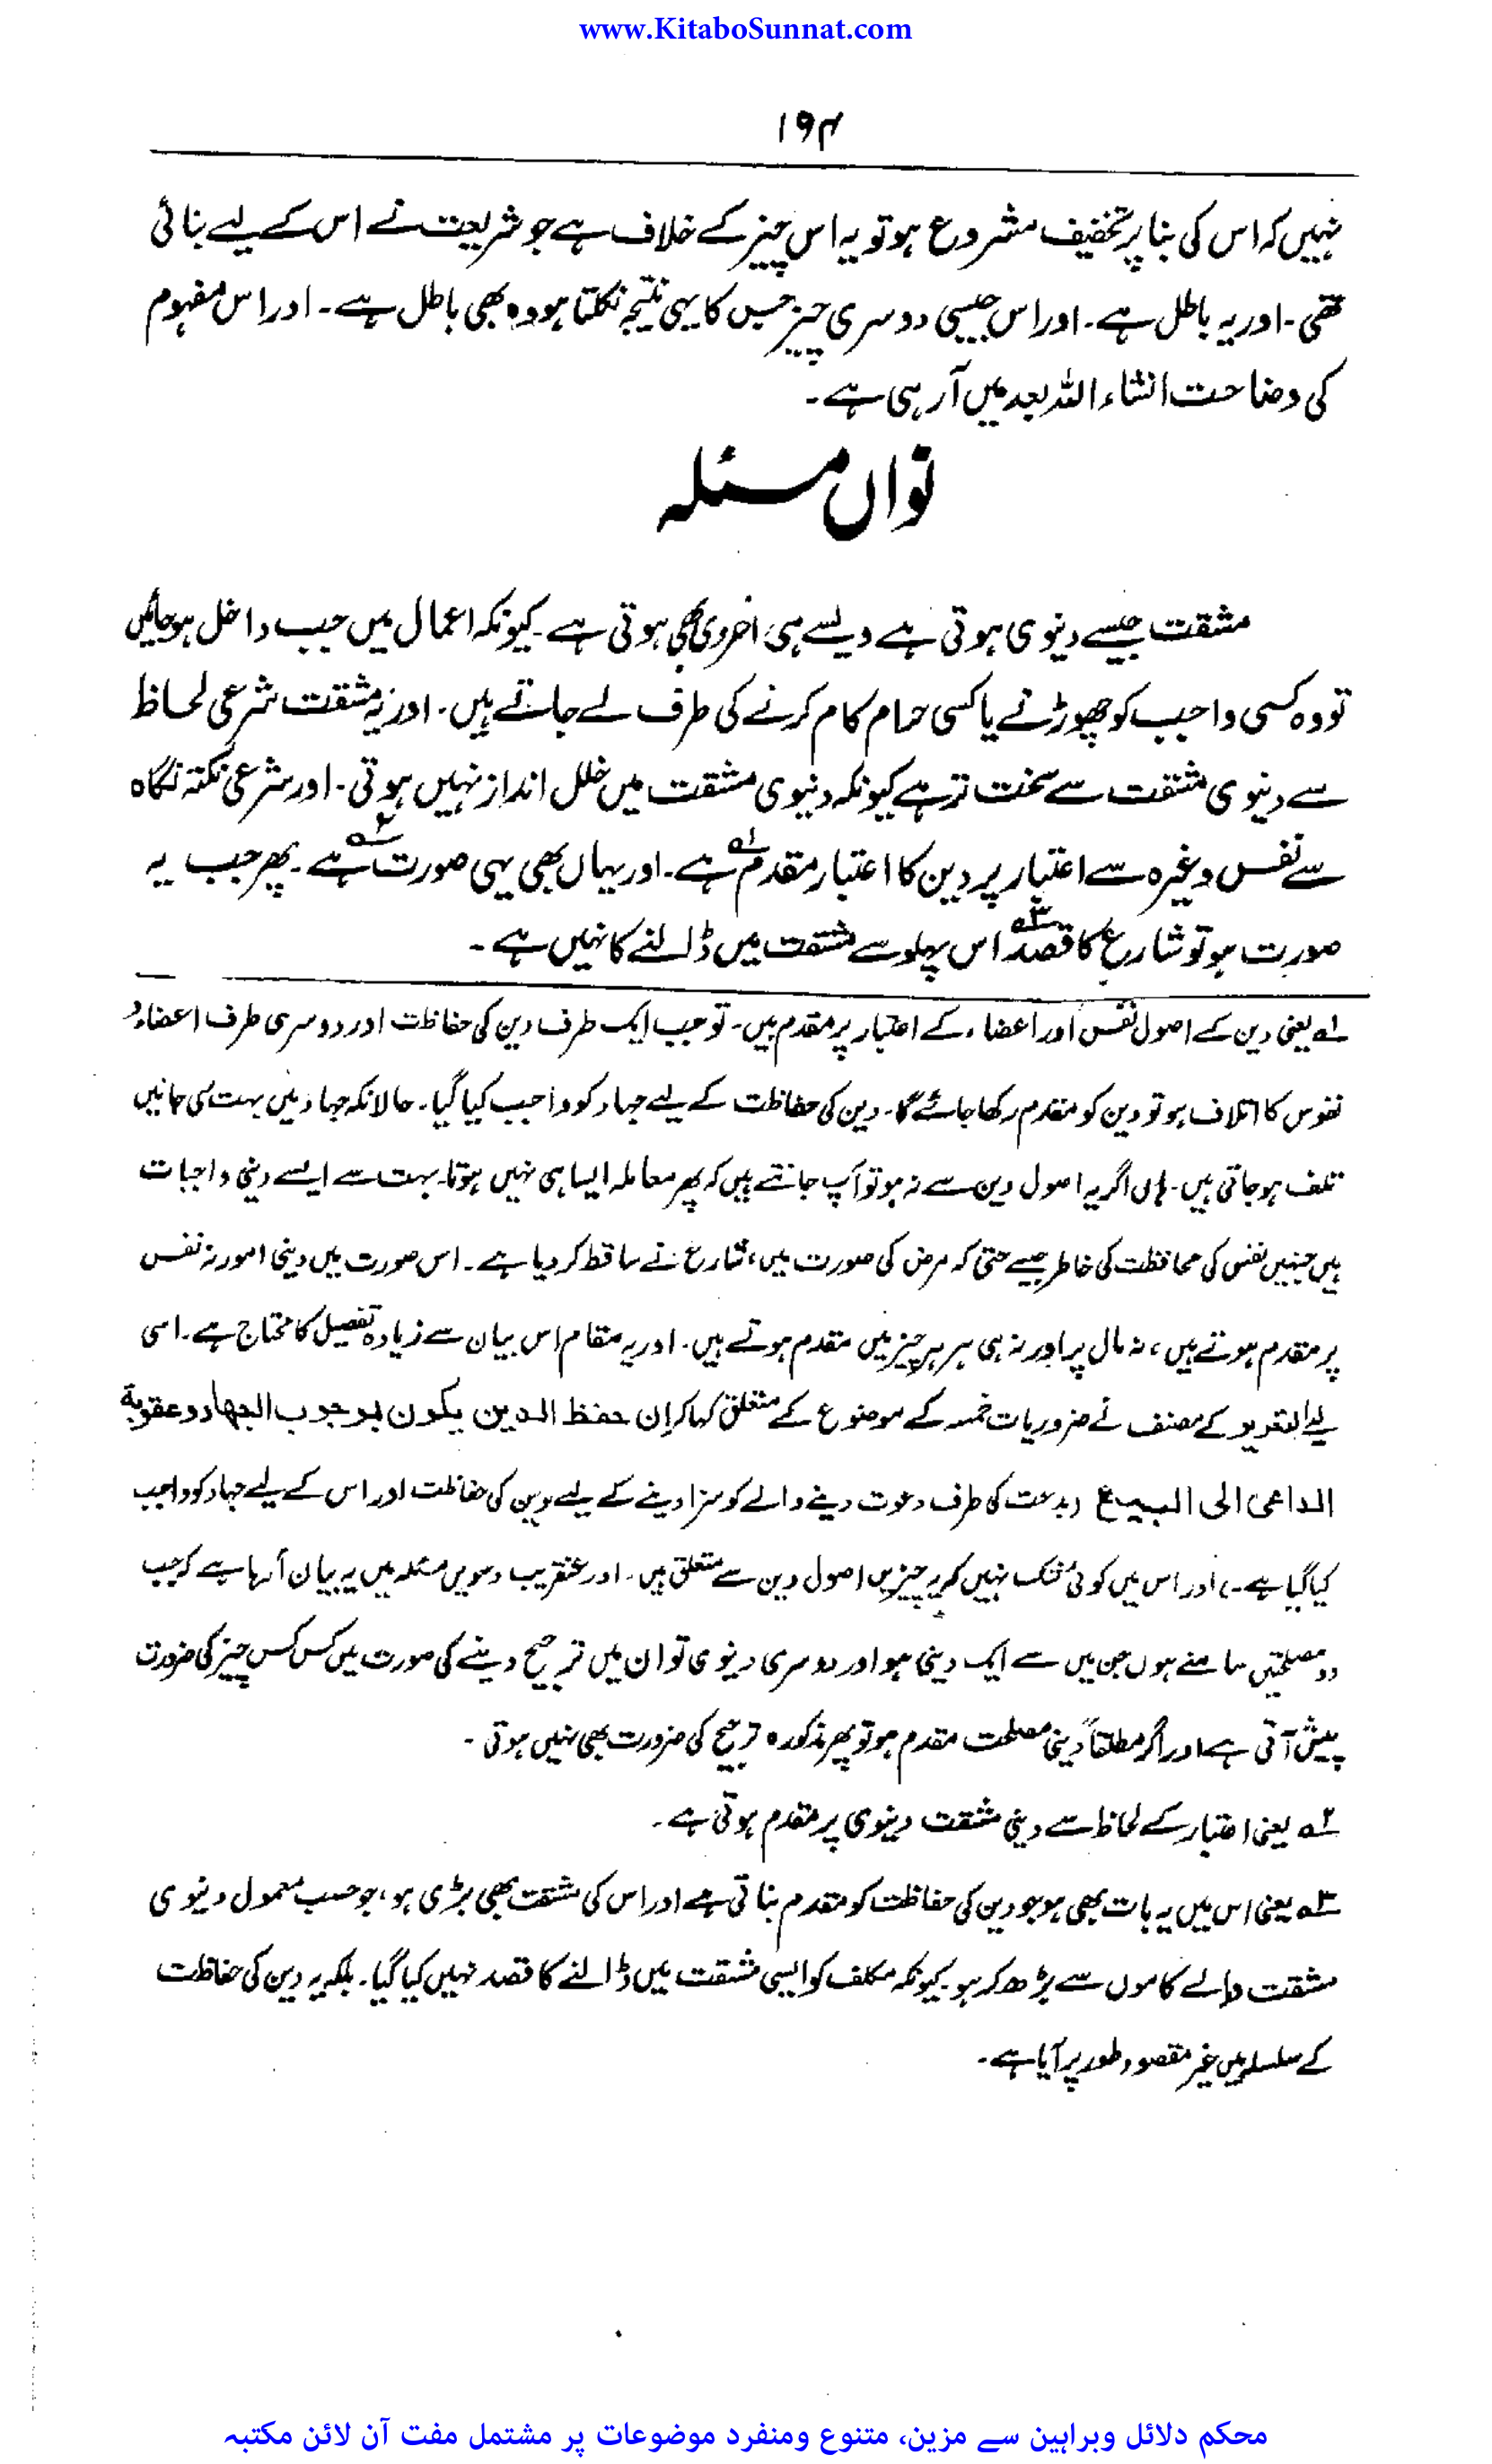 www.KitaboSunnat.com
۱۹۴
نہیں کہ اس کی بنا پر تخفیف مشروع ہو تو یہ اس چیز کے خلاف ہے جو شریعت نے اس کے لیے بنائی
تھی۔ اور یہ باطل ہے۔ اور اس جیسی دوسری چیز جس کا یہی نتیجہ نکلتا ہو وہ بھی باطل ہے۔ اور اس مفہوم
کی وضاحت انشاء اللہ بعد میں آرہی ہے۔
نواں مسئلہ
مشقت جیسے دنیوی ہوتی ہے ویسے ہی اخروی بھی ہوتی ہے۔ کیونکہ اعمال میں جب داخل ہوجائیں
تو وہ کسی واجب کو چھوڑنے یا کسی حرام کام کرنے کی طرف لے جاتے ہیں۔ اور یہ مشقت شرعی لحاظ
سے دنیوی مشقت سے سخت تر ہے کیونکہ دنیوی مشقت میں خلل انداز نہیں ہوتی۔ اور شرعی نکتہ نگاہ
سے نفس وغیرہ سے اعتبار پر دین کا اعتبار مقدم ہے۔ ۱ اور یہاں بھی یہی صورت ہے۔ ۲ پھر جب یہ
صورت ہو تو شارع کا قصد ۳ اس پہلو سے مشقت میں ڈالنے کا نہیں ہے۔
۱ یعنی دین کے اصول نفس اور اعضاء کے اعتبار پر مقدم ہیں۔ تو جب ایک طرف دین کی حفاظت اور دوسری طرف اعضاء و
نفوس کا اتلاف ہو تو دین کو مقدم رکھا جائے گا۔ دین کی حفاظت کے لیے جہاد کو واجب کیا گیا۔ حالانکہ جہاد میں بہت سی جانیں
تلف ہوجاتی ہیں۔ ہاں اگر یہ اصول دین سے نہ ہو تو آپ جانتے ہیں کہ پھر معاملہ ایسا ہی نہیں ہوتا۔ بہت سے ایسے دینی واجبات
ہیں جنہیں نفس کی محافظت کی خاطر جیسے حتیٰ کہ مرض کی صورت میں، شارع نے ساقط کردیا ہے۔ اس صورت میں دینی امور نہ نفس
پر مقدم ہوتے ہیں، نہ مال پر اور نہ ہی ہر ہر چیز میں مقدم ہوتے ہیں۔ اور یہ مقام اس بیان سے زیادہ تفصیل کا محتاج ہے۔ اسی
لیے التحریر کے مصنف نے ضروریات خمسہ کے موضوع کے متعلق کہا کہ إن حفظ الدین یکون بوجوب الجهاد وعقوبة
الداعی الی البدع (بدعت کی طرف دعوت دینے والے کو سزا دینے کے لیے دین کی حفاظت اور اس کے لیے جہاد کو واجب
کیا گیا ہے۔) اور اس میں کوئی شک نہیں کہ یہ چیزیں اصول دین سے متعلق ہیں۔ اور عنقریب دسویں مسئلہ میں یہ بیان آرہا ہے کہ جب
دو مصلحتیں سامنے ہوں جن میں سے ایک دینی ہو اور دوسری دنیوی تو ان میں ترجیح دینے کی صورت میں کس کس چیز کی ضرورت
پیش آتی ہے اور اگر مطلقاً دینی مصلحت مقدم ہو تو پھر مذکورہ ترجیح کی ضرورت بھی نہیں ہوتی۔
۲ یعنی اعتبار کے لحاظ سے دینی مشقت دنیوی پر مقدم ہوتی ہے۔
۳ یعنی اس میں یہ بات بھی ہو جو دین کی حفاظت کو مقدم بناتی ہے اور اس کی مشقت بھی بڑی ہو، جو حسب معمول دنیوی
مشقت والے کاموں سے بڑھ کر ہو۔ کیونکہ مکلف کو ایسی مشقت میں ڈالنے کا قصد نہیں کیا گیا۔ بلکہ یہ دین کی حفاظت
کے سلسلہ میں غیر مقصود طور پر آیا ہے۔
محکم دلائل وبراہین سے مزین، متنوع ومنفرد موضوعات پر مشتمل مفت آن لائن مکتبہ